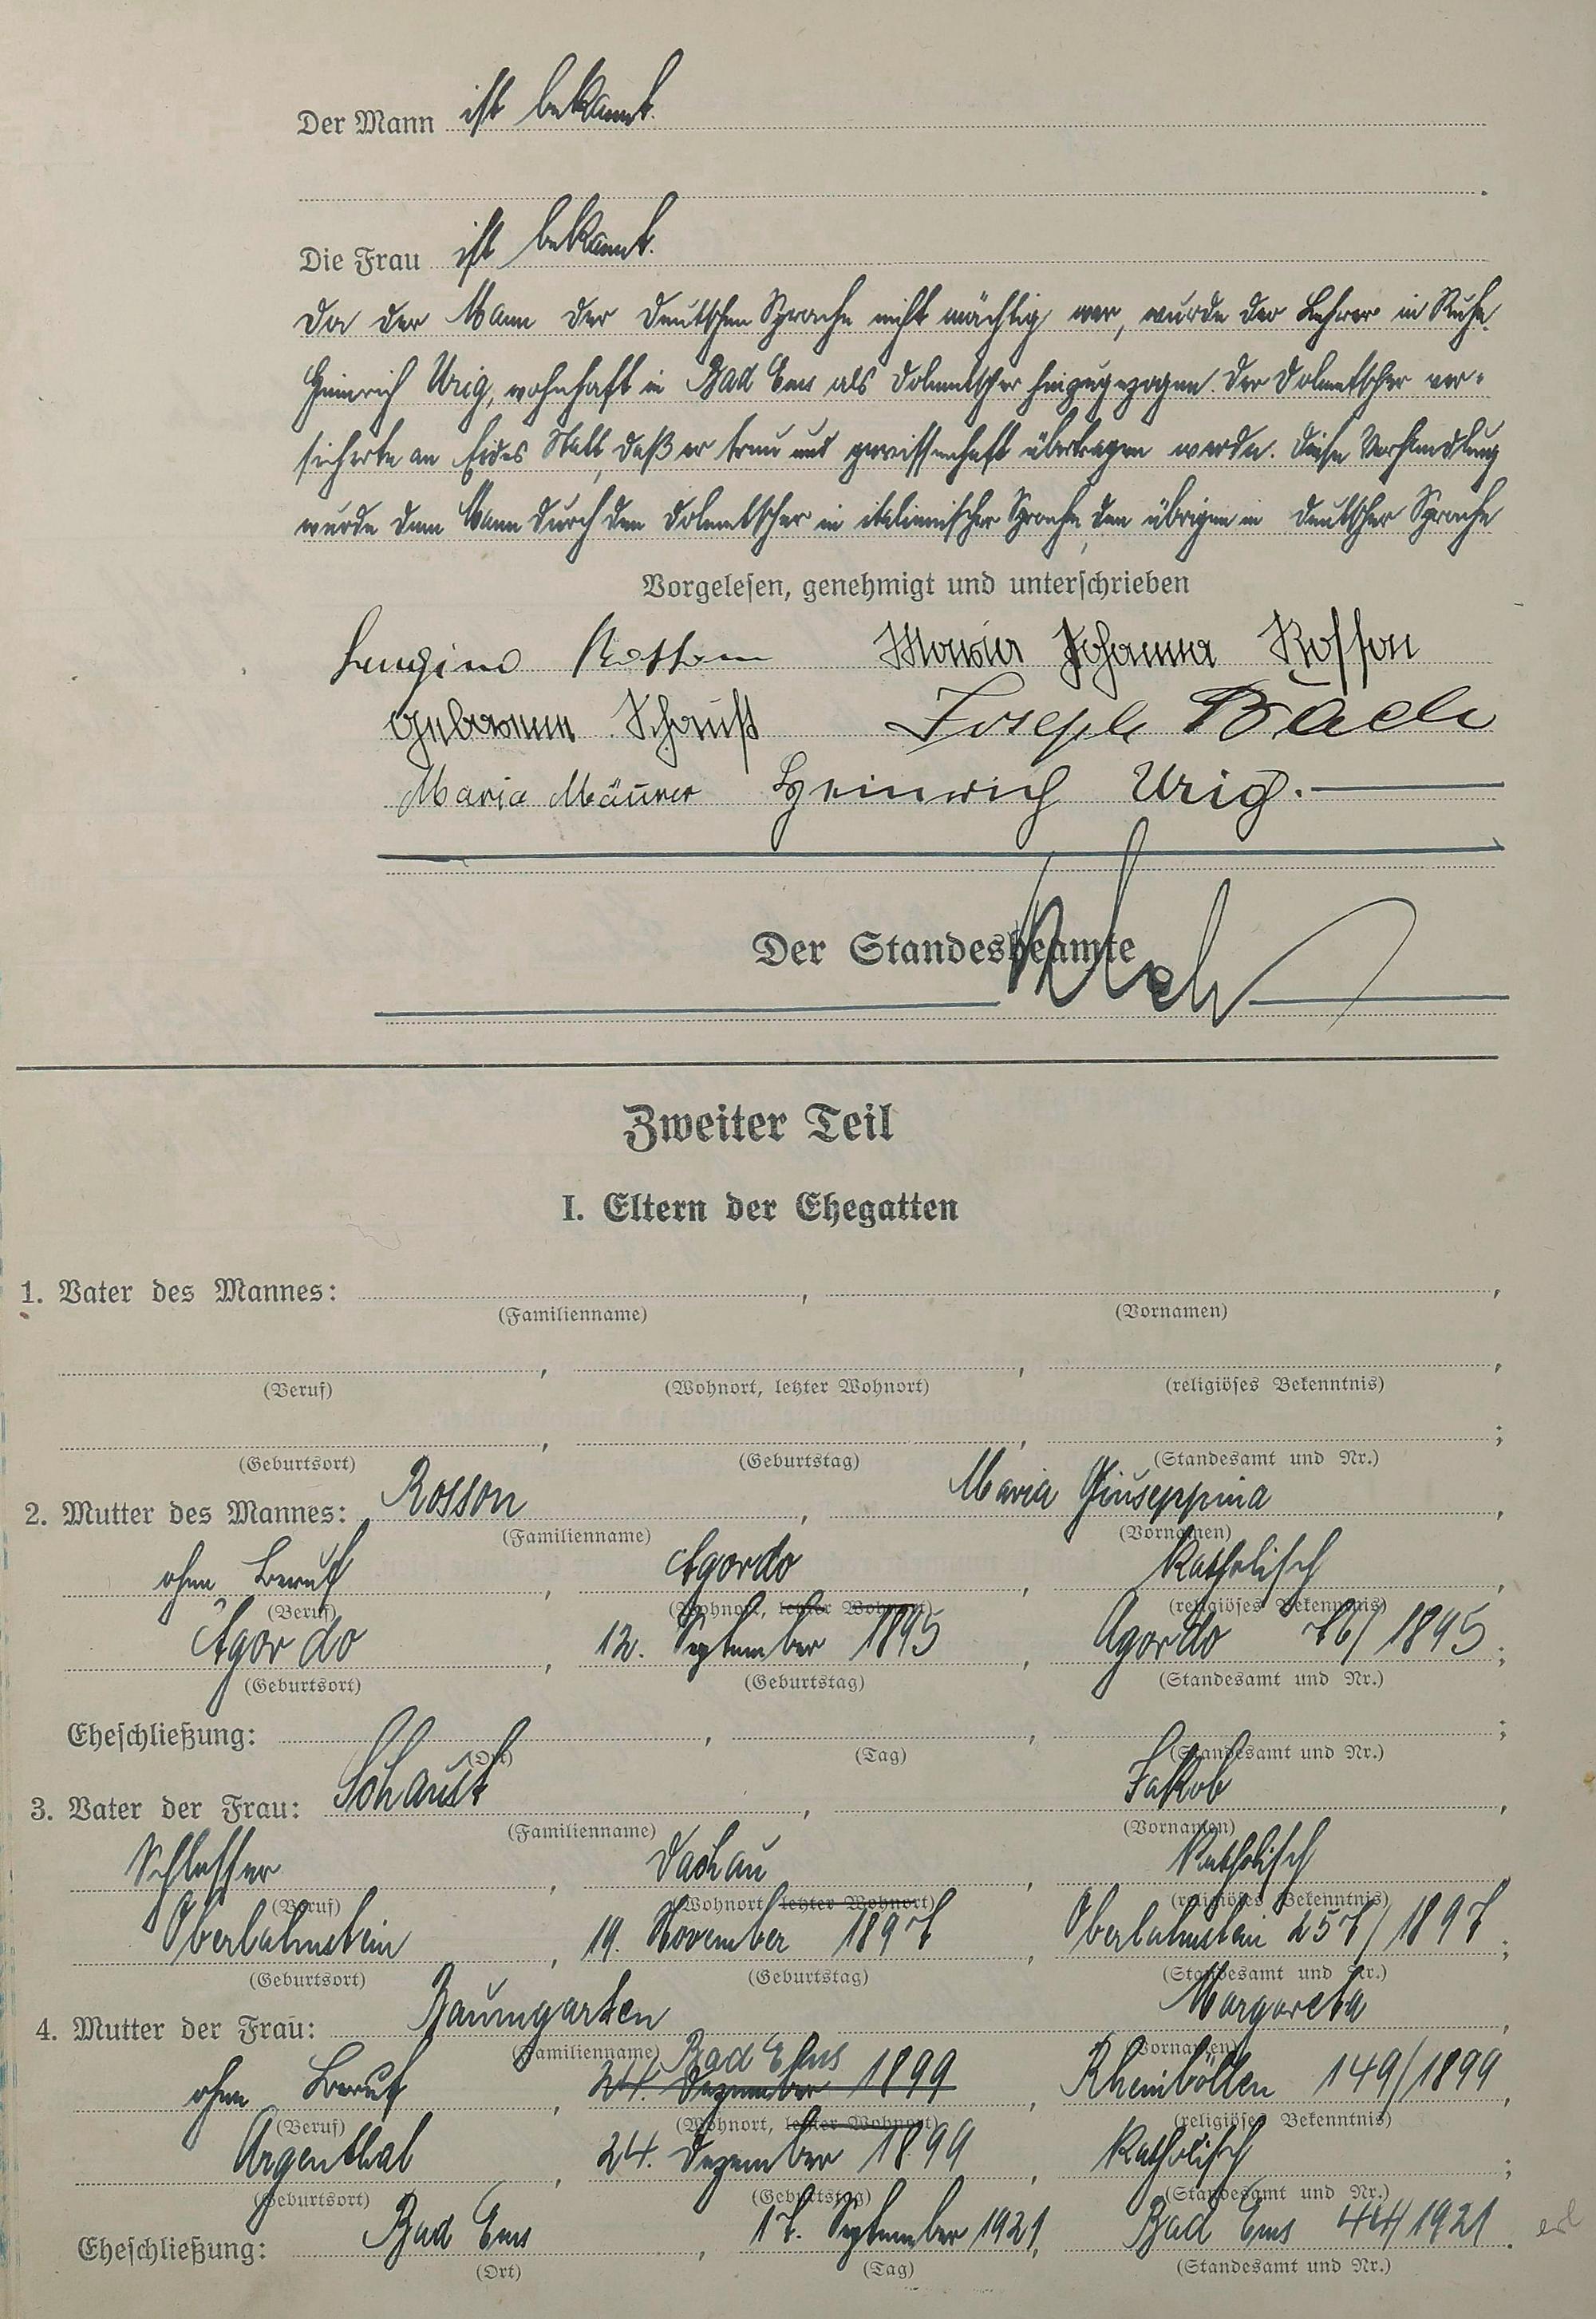 Der Mann ist bekannt.
Die Frau ist bekannt.
Da der Mann der deutschen Sprache nicht mächtig war, wurde der Lehrer in Ruhe
Heinrich Urig, wohnhaft in Bad Ems als Dolmetscher hinzugezogen. Der Dolmetscher ver-
sicherte an Eides Statt, daß er treu und gewissenhaft übertragen werde. Diese Verhandlung
wurde dem Mann durch den Dolmetscher in italienischer Sprache, den übrigen in deutscher Sprache
Vorgelesen, genehmigt und unterschrieben
Luigino Rosson Maria Johanna Rosson
geborene Schaust Joseph Bach
Maria Mäurer Heinrich Urig.
Der Standesbeamte
Zweiter Teil
I. Eltern der Ehegatten
1. Vater des Mannes: , ,
(Familienname) (Vornamen)
, , ,
(Beruf) (Wohnort, letzter Wohnort) (religiöses Bekenntnis)
, , ;
(Geburtsort) (Geburtstag) (Standesamt und Nr.)
2. Mutter des Mannes: Rosson , Maria Giuseppina ,
(Familienname) (Vornamen)
ohne Beruf , Agordo , katholisch ,
(Beruf) (Wohnort, letzter Wohnort) (religiöses Bekenntnis)
Agordo , 12. September 1895 , Agordo 76/1895 ;
(Geburtsort) (Geburtstag) (Standesamt und Nr.)
Eheschließung: , , ;
(Ort) (Tag) (Standesamt und Nr.)
3. Vater der Frau: Schaust , Jakob ,
(Familienname) (Vornamen)
Schlosser , Dachau , katholisch ,
(Beruf) (Wohnort, letzter Wohnort) (religiöses Bekenntnis)
Oberlahnstein , 19. November 1897 , Oberlahnstein 257/1897 ;
(Geburtsort) (Geburtstag) (Standesamt und Nr.)
4. Mutter der Frau: Baumgarten Margareta ,
(Familienname) (Vornamen)
Bad Ems
ohne Beruf , 24. Dezember 1899 , Rheinböllen 149/1899 ,
(Beruf) (Wohnort, letzter Wohnort) (religiöses Bekenntnis)
Argenthal , 24. Dezember 1899 , katholisch ;
(Geburtsort) (Geburtstag) (Standesamt und Nr.)
Eheschließung: Bad Ems , 17. September 1921, Bad Ems 44/1921 .
(Ort) (Tag) (Standesamt und Nr.)